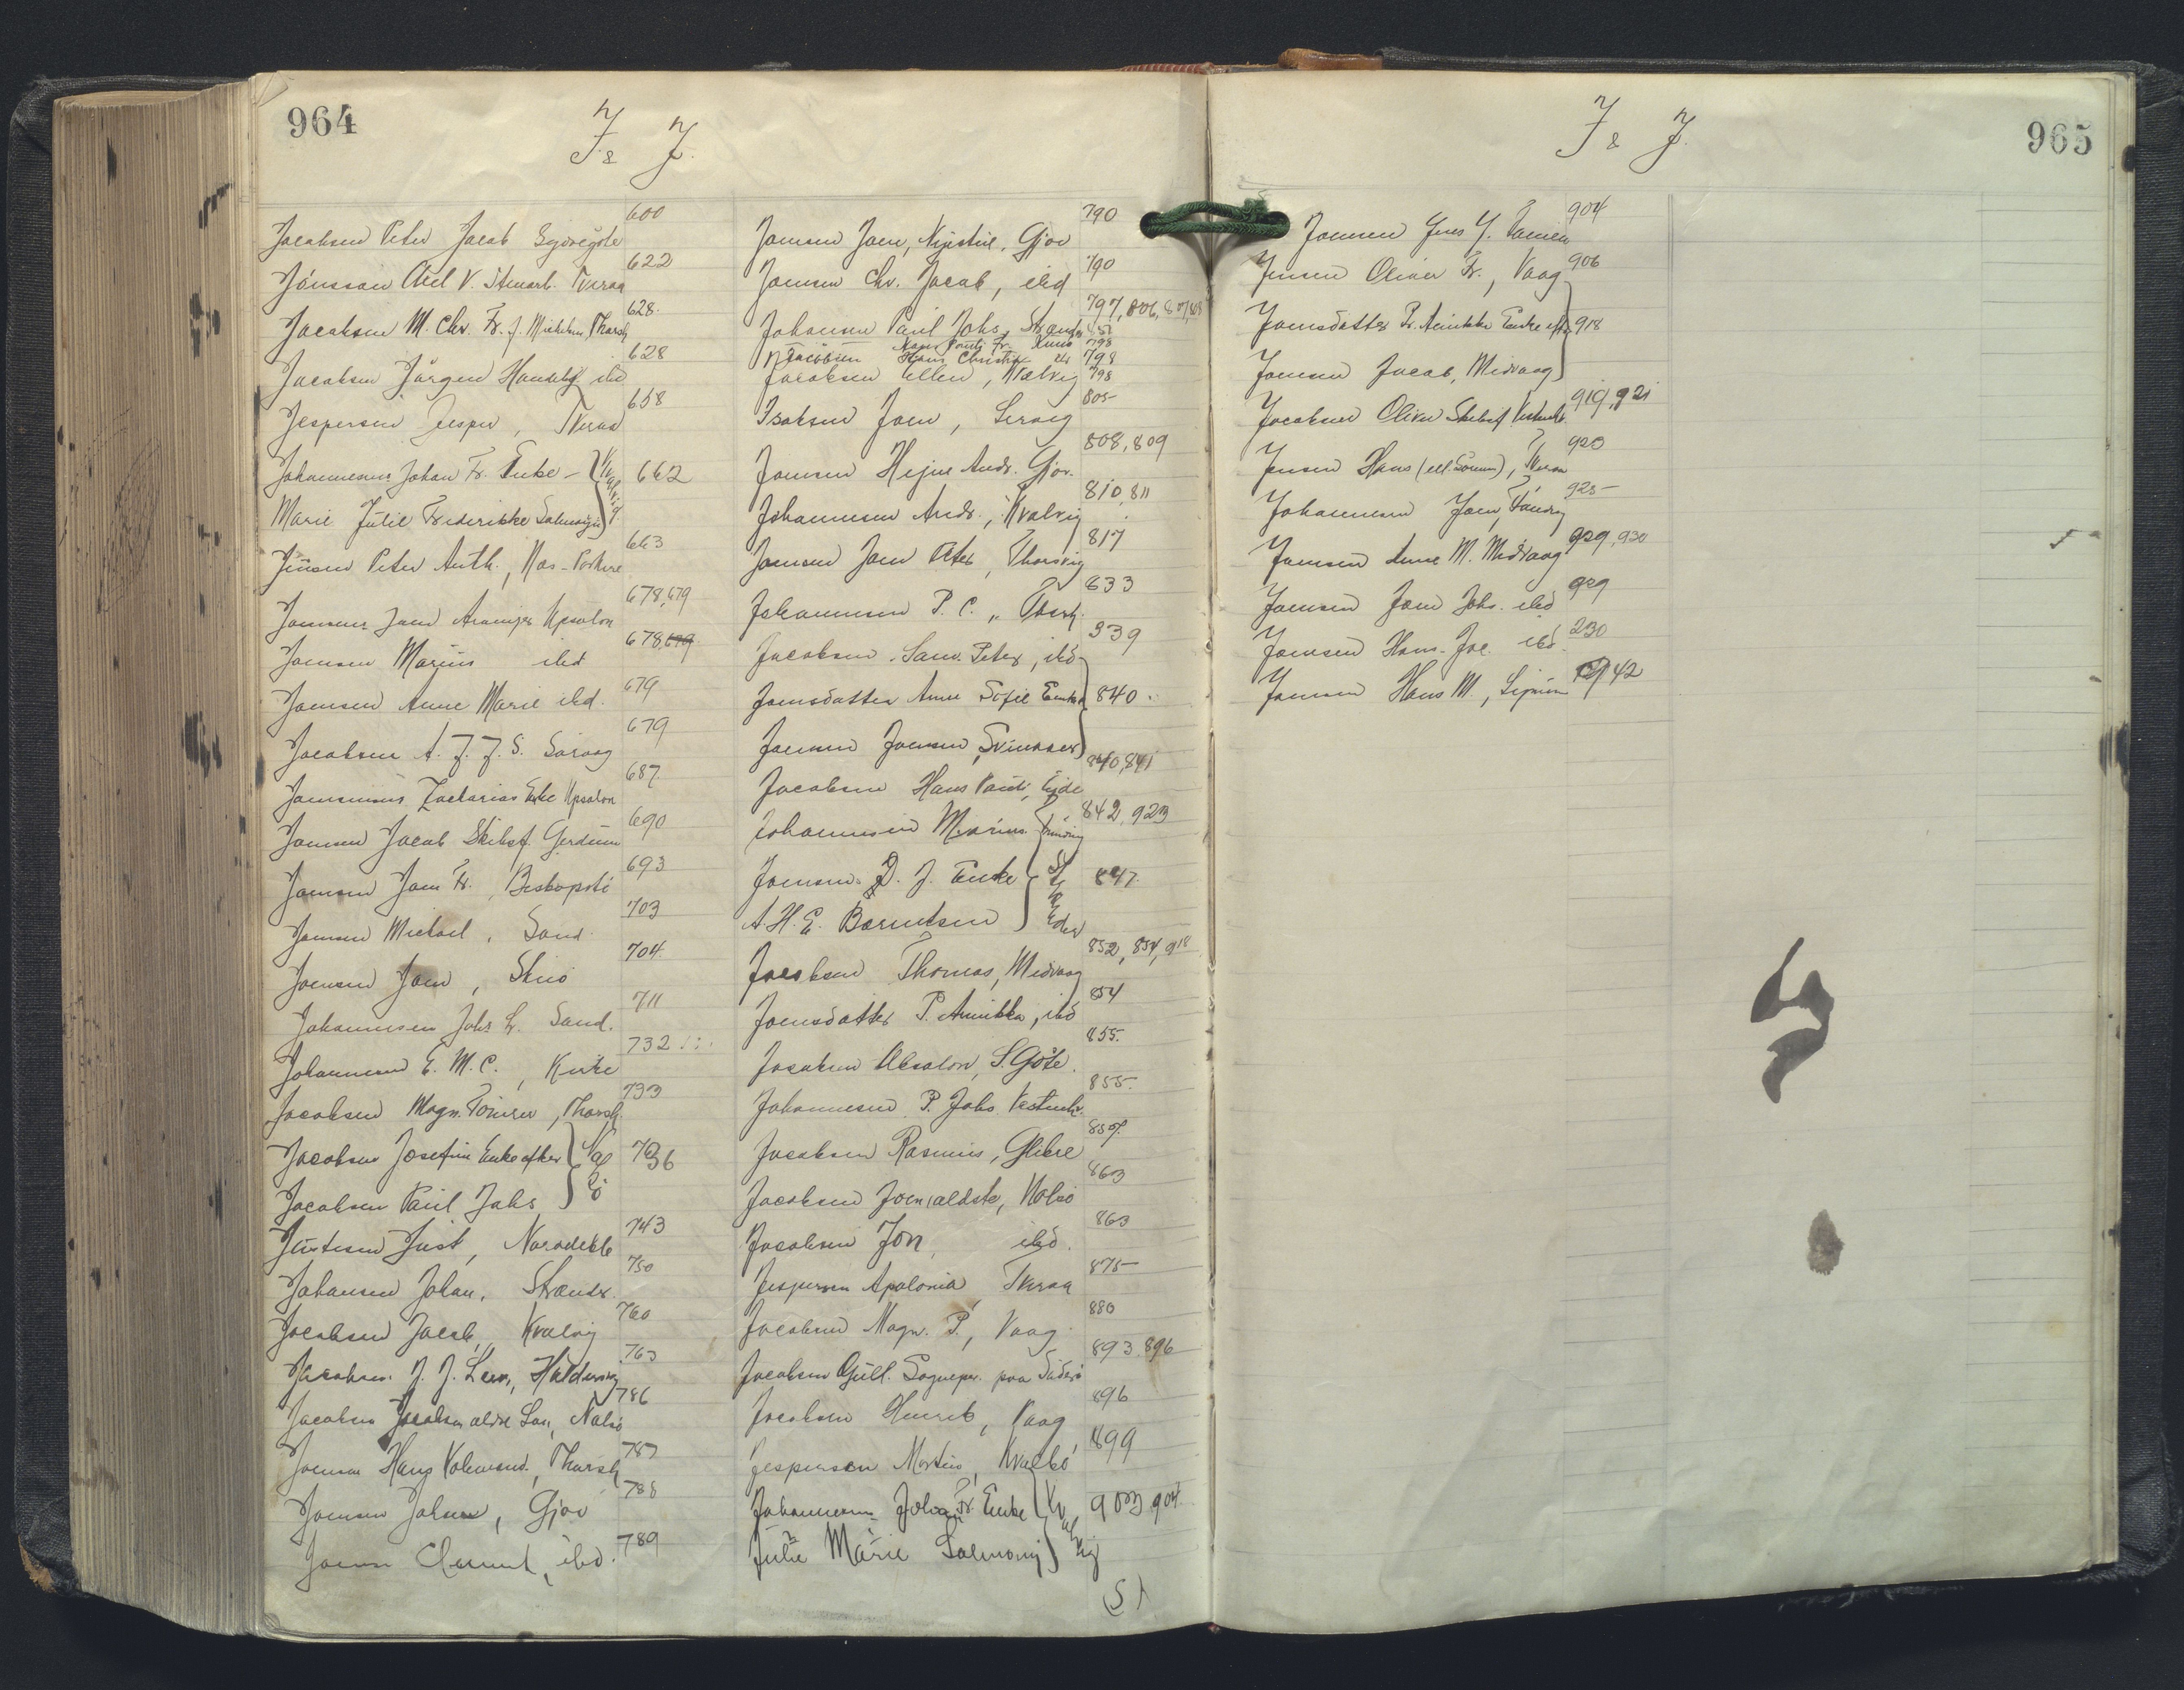 964
J & J.
Jacobsen Peter Jacob Sydregöte 600
Jónsson Axel V. Stuart. Tveraa 622
Jacobsen M. Chr. Fr. f. Michelsen, Thorsh 628.
Jacobsen Jörgen Handels ibd 628
Jespersen Jesper, Tveraa 658
Johannesens Johan Fr. Enke – Kvalvig 662
Marie Julie Frederikke Salmonju
Jensen Peter Anth., Næs-Porkere 663
Joensens Joen Upsalon 678, 679
Joensen Marius ibid 678, 679.
Joensen Anne Marie ibd. 679
Jacobsen A. J. J. S. Sörvaag 679
Joensens Zacharias Enke Upsalon 687.
Joensen Jacob Skibsf. Gerdum 690
Joensen Joen Fr., Biskopstö 693
Joensen Michael, Sand. 703
Joensen Joen, Skuö 704.
Johannesen Johs L. Sand. 711
Johannesen E. M. C., Kirke 732
Jacobsen Magn. Poulsen, Thorsh. 733
Jacobsen Josefine Enke efter Nolsö 736
Jacobsen Paul Johs
Justesen Just, Noradeble 743
Johansen Johan, Strender. 750
Jacobsen Jacob, Kvalvig 760
Jacobsen. J. J. Leer, Haldersvig 763
Jacobsen Jacobsen ældre Søn, Nolsö 786
Joensen Hans Kalmsund., Thorsh 787
Joensen Johan, Gjov 788
Joensen Clement, ibd. 789
Joensen Joen, Nyistue, Gjov 790
Joensen Chr. Jacob, ibd 790
Johansen Paul Johs, Strender 797, 806, 807, 808
Jacobsen Hans Christian 798
Jacobsen Ellen, Kvalvig 798
Isaksen Joen, Lervig 805
Joensen Hejne Andr. Gjov. 808, 809
Johannesen Andr., Kvalvig 810, 811
Joensen Joen Peter, Thorsvig 817
Johannesen P. C., Thorsh. 833
Jacobsen Sam. Peter, ibd 839
Joensdatter Anne Sofie Enke 840
Joensen Joensen, Svinaaer
Jacobsen Hans Pauli, Ejde 840, 841
Johannesen Marius. Funding 842, 923
Joensens D. J. Enke 847.
A. H. E. Barentsen
Jacobsen Thomas, Midvaag 852, 854, 918
Joensdatter P. Annikka, ibd 854
Jacobsen Absalon, S. Göte. 855.
Johannesen P. Johs. Vestmh. 855.
Jacobsen Rasmus, Glibre 857.
Jacobsen Joen, ældste, Nolsö 863
Jacobsen Jon, ibd. 863
Jespersen Apolonia Tveraa 875
Jacobsen Magn. P., Vaag. 880
Jacobsen Gull. Sognepr. paa Suderö 893, 896
Jacobsen Henrik, Vaag 896
Jespersen Morten, Kvalbö 899
Johannesens Johan Fr. Enke Kvalvig 903, 904.
Julie Marie Salmonsj
(51
965
J & J.
Joensen Jens J. Famien 904
Jensen Oliver Fr., Vaag 906
Joensdatter P. Annikka Enke eft. 918
Joensen Jacob, Midvaag
Jacobsen Oliver Skibsf Vestmh. 919, 921
Jensen Hans (ell. Joensen), Tveraa 923
Johannesen Joen, Funding 925
Joensen Anne M. Midvaag 929, 930
Joensen Joen Johs. ibd 929
Joensen Hans. Joe. ibd. 230
Joensen Hans M., Signum 942